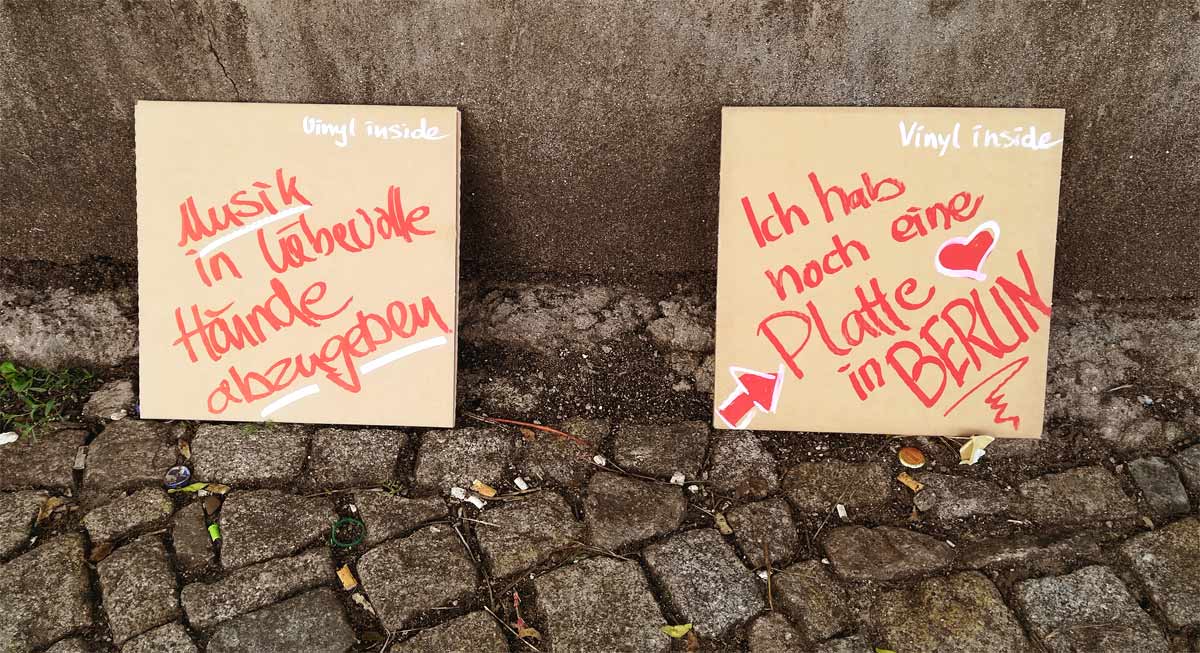 Vinyl inside
Musik
in liebevolle
Hände
abzugeben
Vinyl inside
Ich hab
noch eine
Platte
in BERLIN